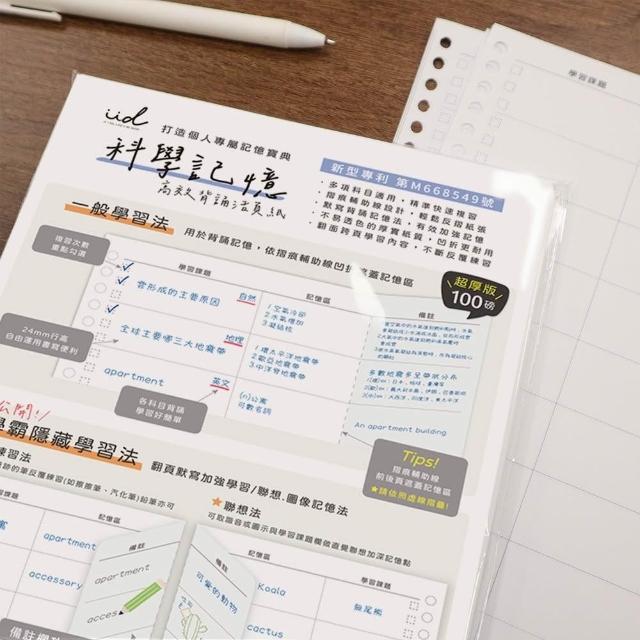 iid
打造個人專屬記憶寶典
科學記憶
高效背誦活頁紙
新型專利 第M668549號
・多項科目適用，精準快速複習
・摺痕輔助線設計，輕鬆反摺紙張
・默寫背誦記憶法，有效加強記憶
・不易透色的厚實紙質，凹折更耐用
・翻面跨頁學習內容，不斷反覆練習
一般學習法
用於背誦記憶，依摺痕輔助線凹折遮蓋記憶區
超厚版
100磅
複習次數
重點勾選
學習課題
記憶區
備註
雲形成的主要原因
自然
1空氣冷卻
2水氣增加
3凝結核
24mm行高
自由運用書寫便利
全球主要哪三大地震帶
地理
1環太平洋地震帶
2歐亞地震帶
3中洋脊地震帶
多數地震多呈帶狀分布
apartment
英文
(n)公寓
可數名詞
An apartment building
各科目背誦
學習好簡單
Tips!
摺痕輔助線
前後頁遮蓋記憶區
★請依照虛線摺疊!
公開!
學霸隱藏學習法
翻頁默寫加強學習/聯想.圖像記憶法
練習法
的筆反覆練習(如擦擦筆、汽化筆)鉛筆亦可
★聯想法
可取諧音或圖示與學習課題欄做直覺聯想加深記憶點
記憶區
備註
apartment
apartment
accessory
acces
備註
可愛的動物
記憶區
學習課題
Koala
無尾熊
cactus
備註欄
學習課題